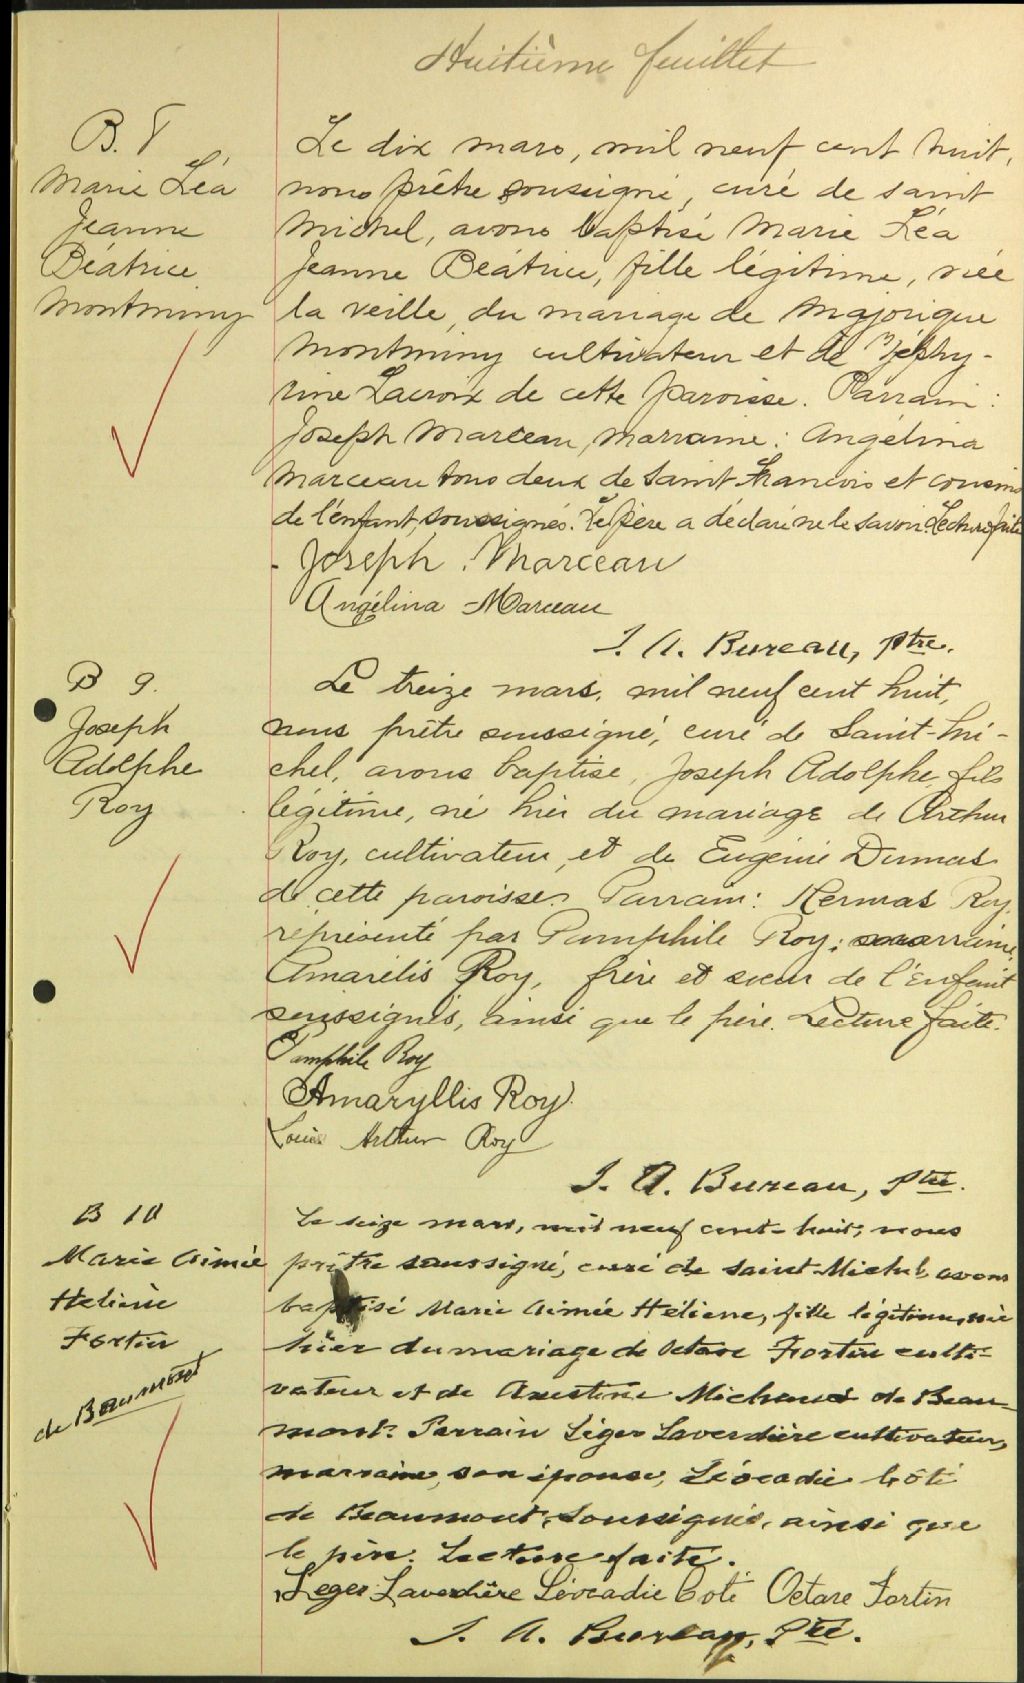 Huitième feuillet
B. 8
Marie Léa
Jeanne
Béatrice
Montminy
Le dix mars, mil neuf cent huit,
nous prêtre soussigné, curé de saint
Michel, avons baptisé Marie Léa
Jeanne Béatrice, fille légitime, née
la veille, du mariage de Majorique
Montminy cultivateur et de Zéphy-
rine Lacroix de cette paroisse. Parrain:
Joseph Marceau, marraine: Angélina
Marceau tous deux de Saint François et cousins
de l'enfant, soussignés. Le père a déclaré ne le savoir. Lecture faite
Joseph Marceau
Angélina Marceau
J. A. Bureau, Ptre.
B 9.
Joseph
Adolphe
Roy
Le treize mars, mil neuf cent huit,
nous prêtre soussigné, curé de Saint-Mi-
chel, avons baptisé, Joseph Adolphe, fils
légitime, né hier du mariage de Arthur
Roy, cultivateur, et de Eugénie Dumas
de cette paroisse. Parrain: Hermas Roy,
représenté par Pamphile Roy; marraine,
Amarélis Roy, frère et sœur de l'Enfant
soussignés, ainsi que le père. Lecture faite.
Pamphile Roy
Amaryllis Roy
Louis Arthur Roy
J. A. Bureau, Ptre.
B 10
Marie Aimée
Hélène
Fortin
de Beaumont
Le seize mars, mil neuf cent-huit, nous
prêtre soussigné, curé de Saint-Michel, avons
baptisé Marie Aimée Hélène, fille légitime, née
hier du mariage de Octave Fortin culti-
vateur et de Michaud de Beau-
mont. Parrain Léger Laverdière cultivateur,
marraine, son épouse, Léocadie Côté
de Beaumont, soussignés, ainsi que
le père. Lecture faite.
Léger Laverdière Léocadie Coté Octave Fortin
J. A. Bureau, Ptre.